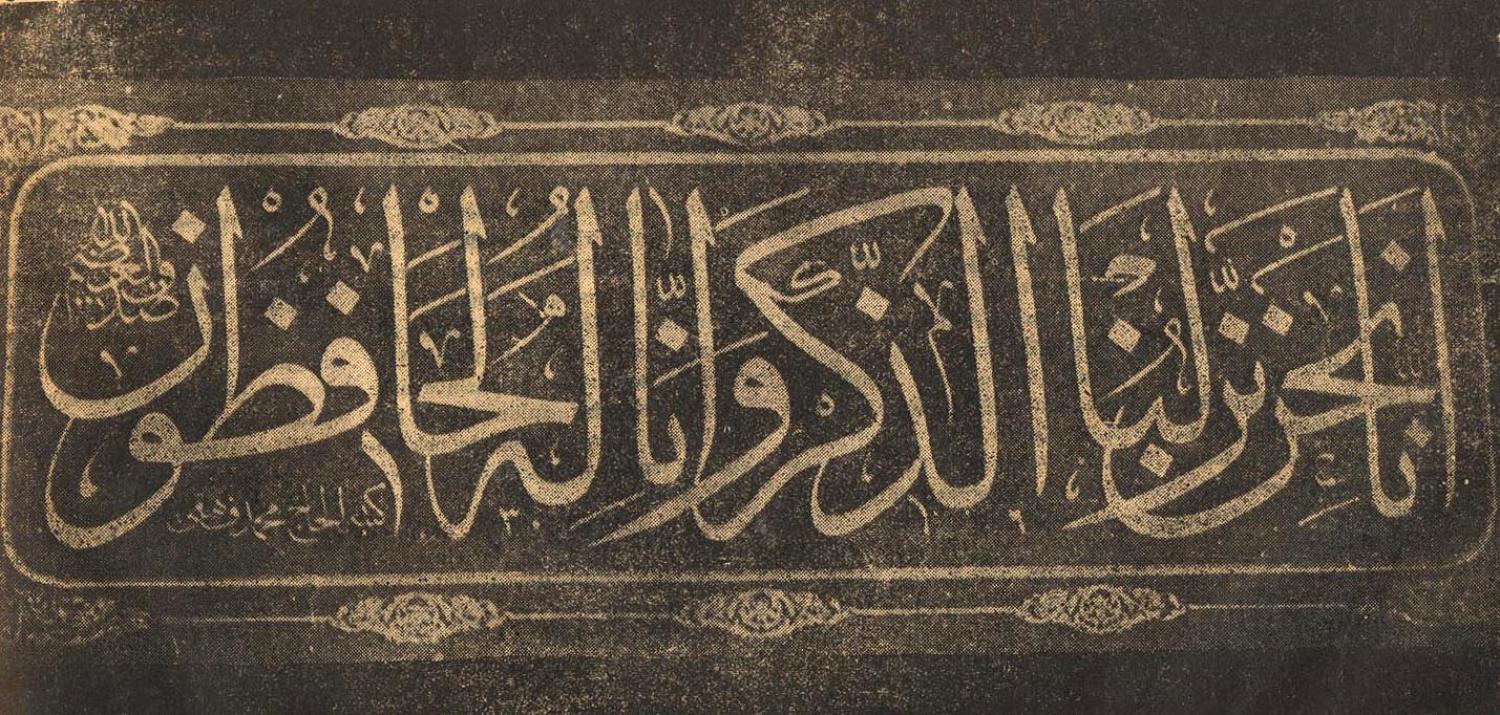 انا نحن نزلنا الذكر وانا له لحافظون
صدق الله العظيم
كتبه الحاج محمد